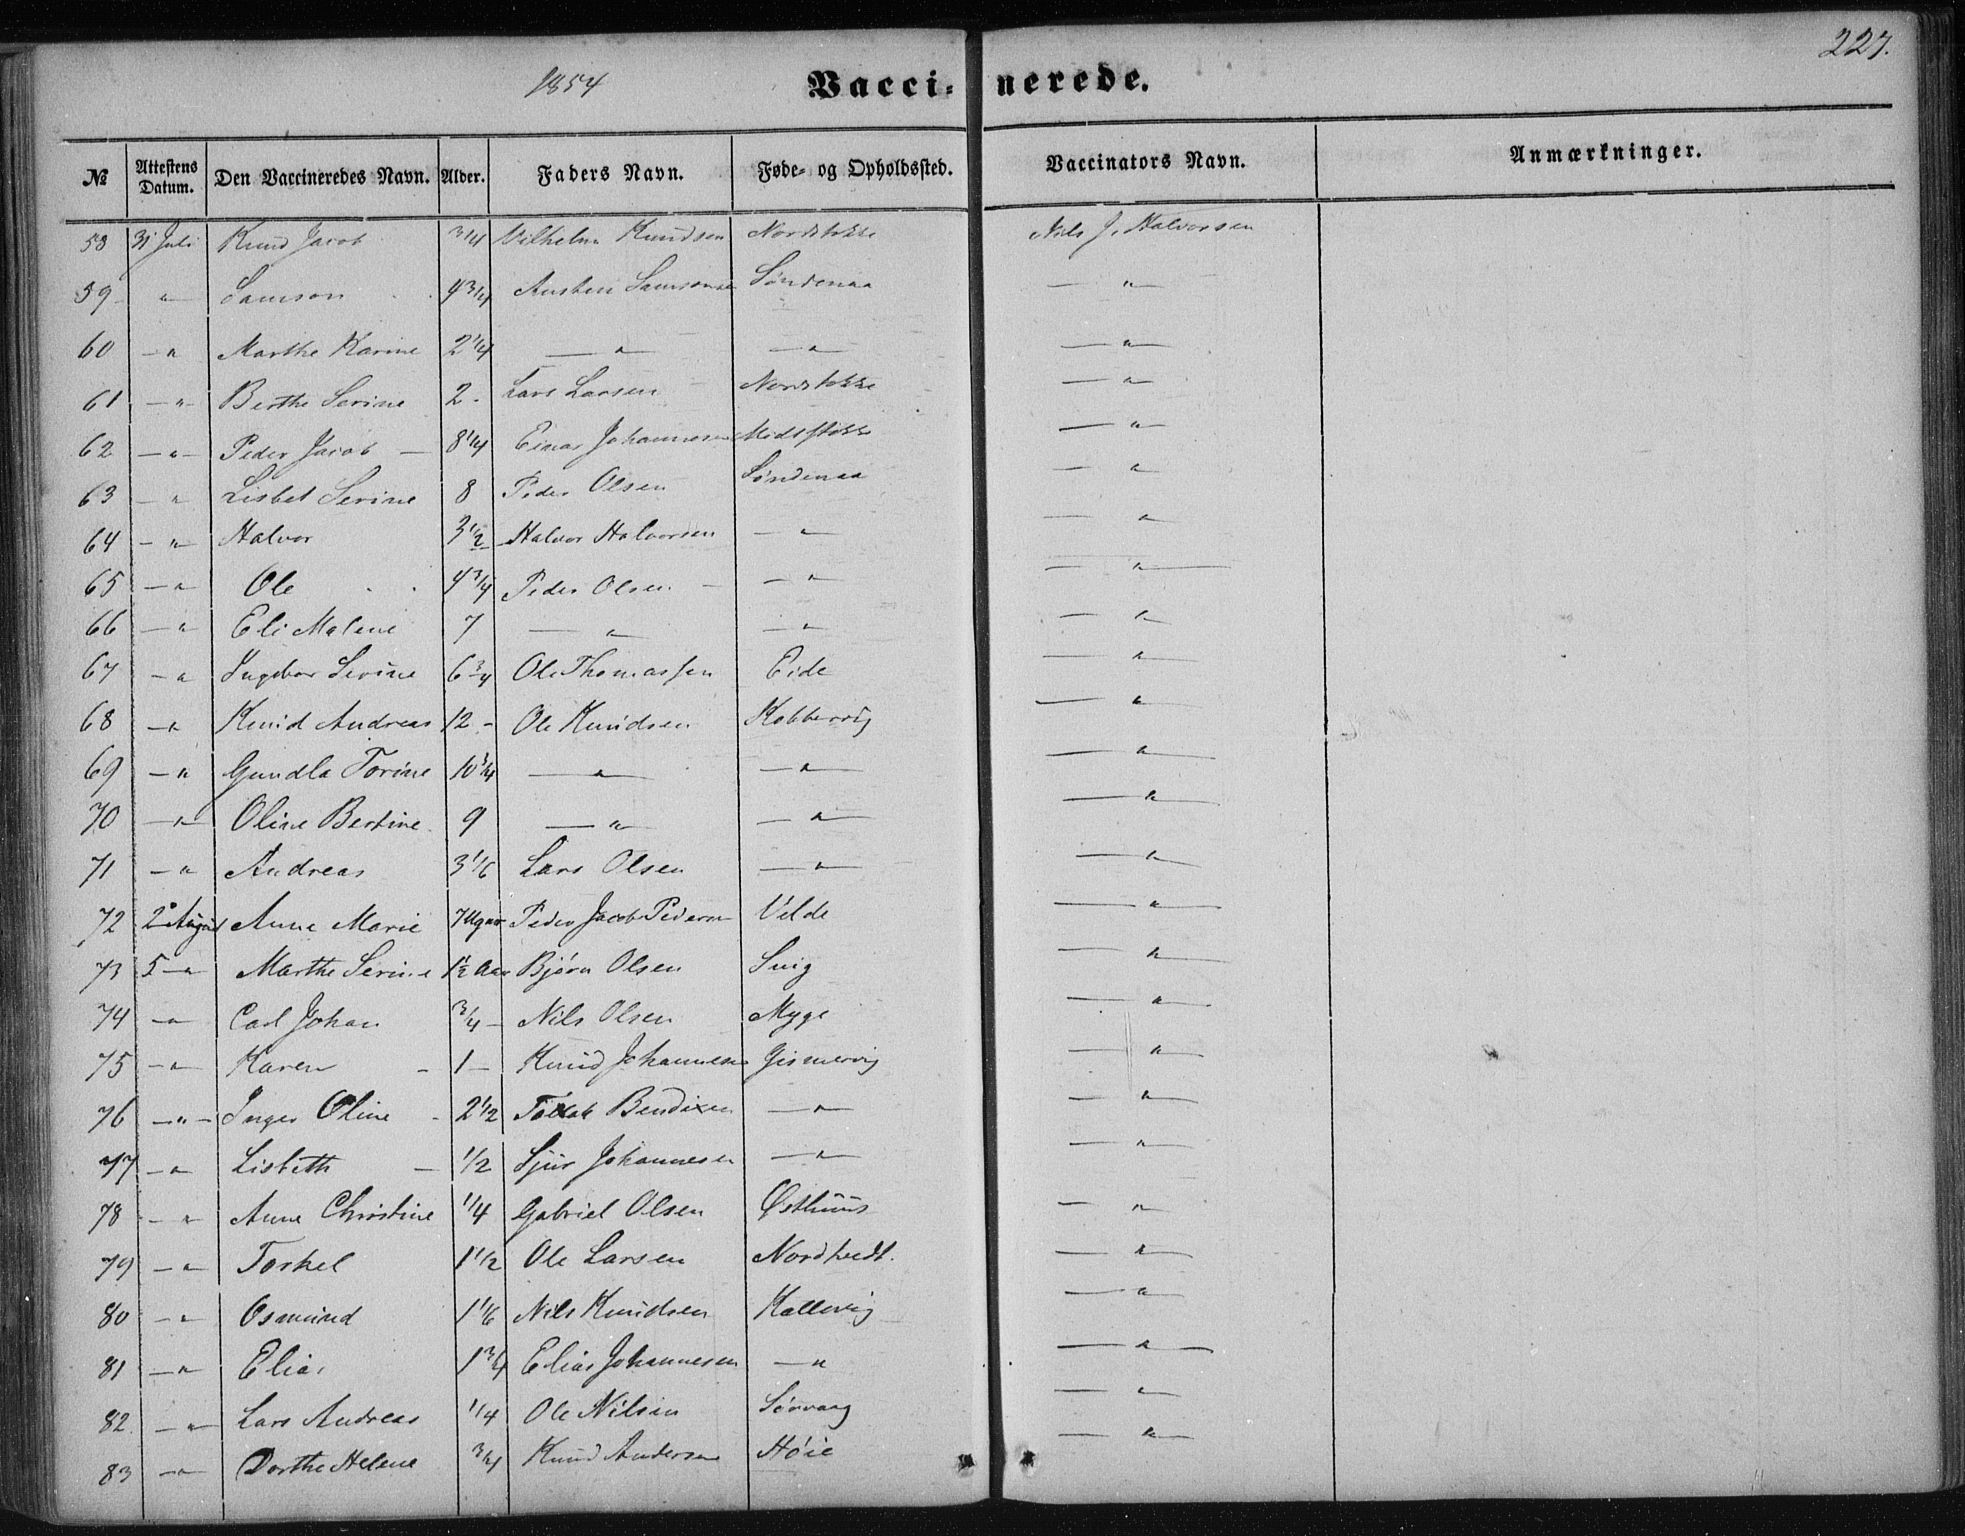 227.
1854
Vaccinerede.
№ Attestens Datum. Den Vaccineredes Navn. Alder. Faders Navn. Føde- og Opholdssted. Vaccinators Navn. Anmærkninger.
58 31 Juli Knud Jacob 3/4 Vilhelm Knudsen Nordstokke Nils J. Halvorsen
59 " Samson 4 3/4 Austen Samsonsen Søndenaa — " —
60 — " Marthe Karine 2 1/4 — " — — " — — " —
61 — " — Berthe Serine 2 - Lars Larsen Nordstokke — " —
62 — " — Peder Jacob — 8 1/4 Einar Johannesen Midstokke — " —
63 — " Lisbet Serine 8 Peder Olsen Søndenaa — " —
64 — " — Halvor 3 1/2 Halvor Halvorsen — " — — " —
65 — " — Ole 4 3/4 Peder Olsen — — " — — " —
66 — " Eli Malene 7 — " — — " — — " —
67 — " Ingebor Serine 6 3/4 Ole Thomassen Eide — " —
68 — " Knud Andreas 12 - Ole Knudsen Kobbervig — " —
69 — " Gundla Torine 10 3/4 — " — — " — — " —
70 — " — Oline Bertine 9 — " — — " — — " —
71 — " Andreas 3 1/6 Lars Olsen — " — — " —
72 2 August Anne Marie 7 Uger Peder Jacob Pedersen Velde — " —
73 5 — " Marthe Serine 1 1/2 Aar Bjørn Olsen Snig — " —
74 — " — Carl Johan 3/4 — Nils Olsen Myge — " —
75 — " — Karen - 1 — Knud Johannesen Gismervig — " —
76 — " — Inger Oline - 2 1/2 Bendixen — " — — " —
77 — " Lisbeth — 1/2 Sjur Johannesen — " — — " —
78 — " Anne Christine 1/4 Gabriel Olsen Østhuus — " —
79 — " Torkel 1 1/2 Ole Larsen Nordtvedt. — " —
80 — " Osmund 1 1/6 Nils Knudsen Kallevig — " —
81 — " Elias 1 3/4 Elias Johannesen — " — " —
82. — " — Lars Andreas 1/4 Ole Nilsen Sørvaag — " —
83 — " Dorthe Helene 3/4 Knud Andersen Høie — " —